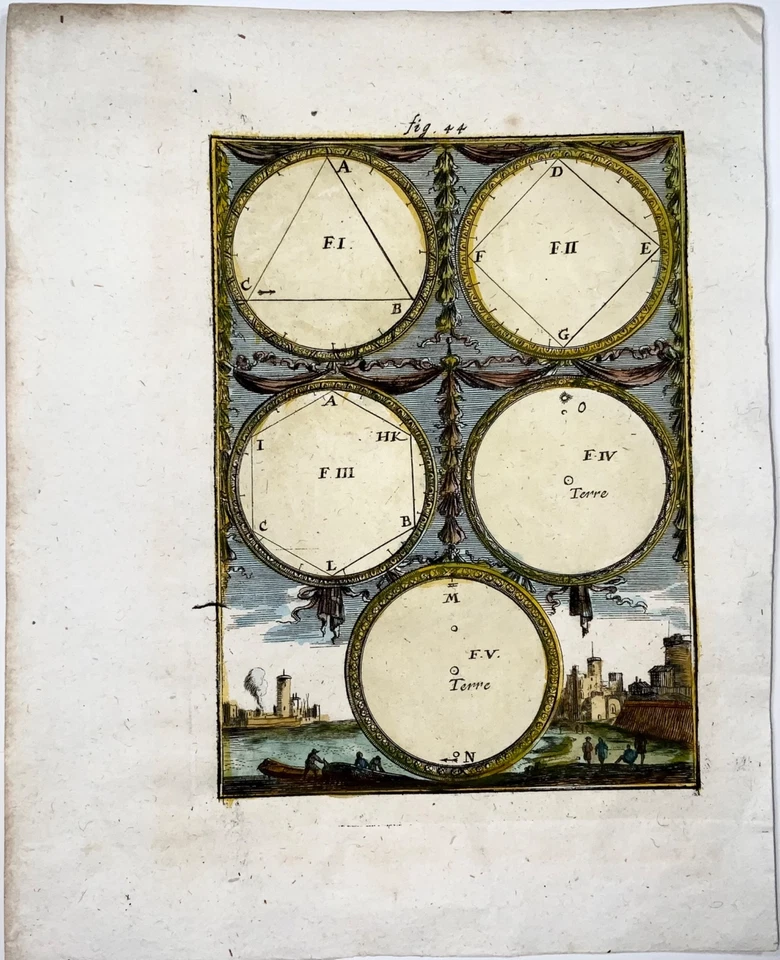 fig. 44
A
F.I.
C
B
D
F
F.II
E
G
A
I
HK
F.III
C
B
L
O
F.IV
Terre
M
F.V.
Terre
N